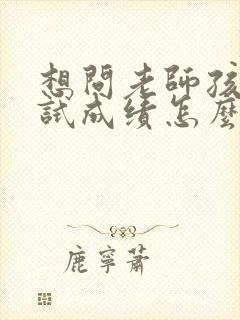 想問老師孩
試成績怎麼
鹿寧蕭